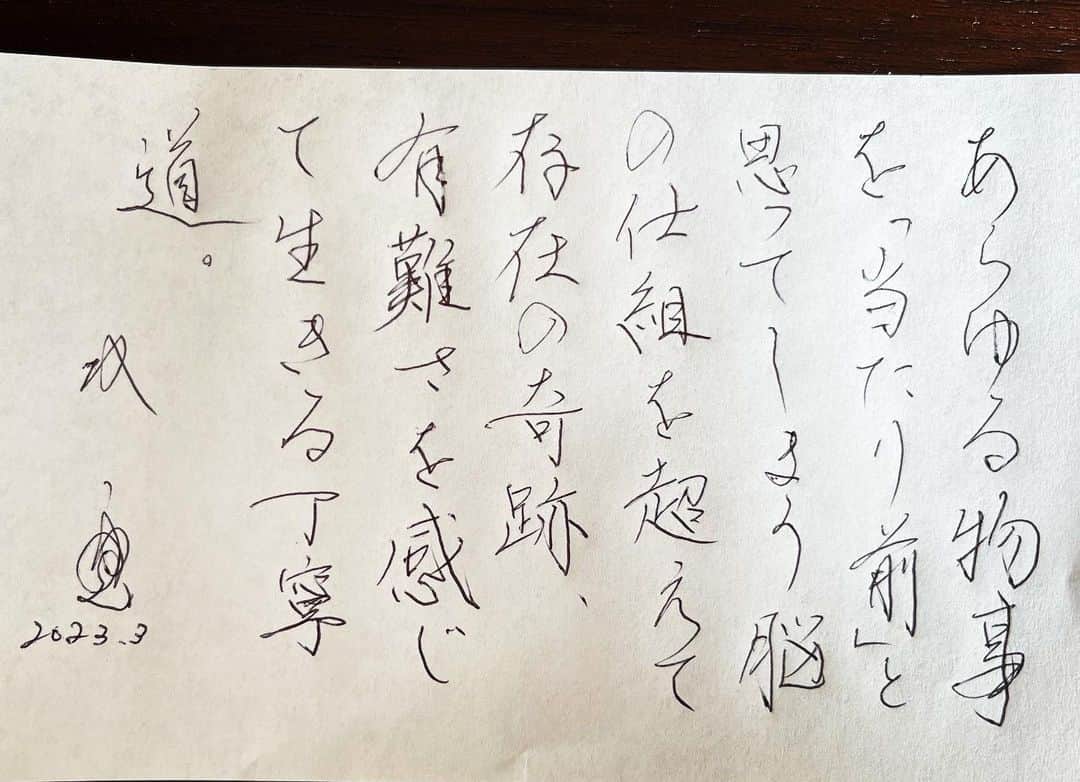 あらゆる物事
を「当たり前」と
思ってしまう脳
の仕組を超えて
存在の奇跡、
有難さを感じ
て生きる丁寧
道。
2023.3